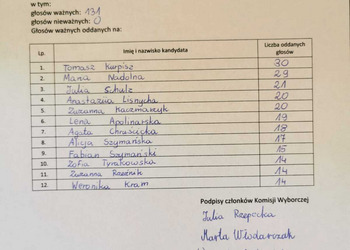 w tym:
głosów ważnych: 131
głosów nieważnych: 0
Głosów ważnych oddanych na:
Lp. Imię i nazwisko kandydata Liczba oddanych głosów
1. Tomasz Kurpisz 30
2. Maria Nadolna 29
3. Julia Schulz 21
4. Anastaziia Lisnycha 20
5. Zuzanna Kaczmarczyk 20
6. Lena Apolinarska 19
7. Agata Chruścicka 18
8. Alicja Szymańska 17
9. Fabian Szymański 15
10. Zofia Tyrakowska 14
11. Zuzanna Rzeźnik 14
12. Weronika Kram 14
Podpisy członków Komisji Wyborczej
Julia Rzepecka
Marta Włodarczak